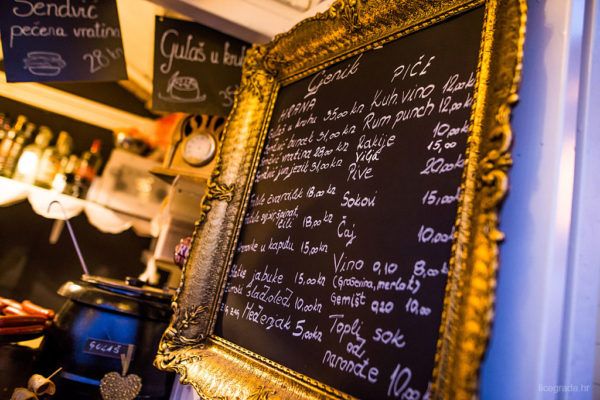 Sendvič
pečena vratina
28 kn
Gulaš u kruhu
Cjenik
HRANA
Gulaš u kruhu 35,00 kn
31,00 kn
vratina 28,00 kn
31,00 kn
čvarak 18,00 kn
čili 18,00 kn
u kaputu 15,00 kn
jabuke 15,00 kn
sladoled 10,00 kn
Medenjak 5,00 kn
PIĆE
Kuh. vino 12,00 kn
Rum punch 12,00 kn
Rakije 10,00 kn
Viga 15,00 kn
Pive 20,00 kn
Sokovi 15,00 kn
Čaj 10,00 kn
Vino 0,10 8,00 kn
(Graševina, merlot)
Gemišt 0,20 10,00
Topli sok
od
naranđe 10,00
GULAŠ
licegrada.hr